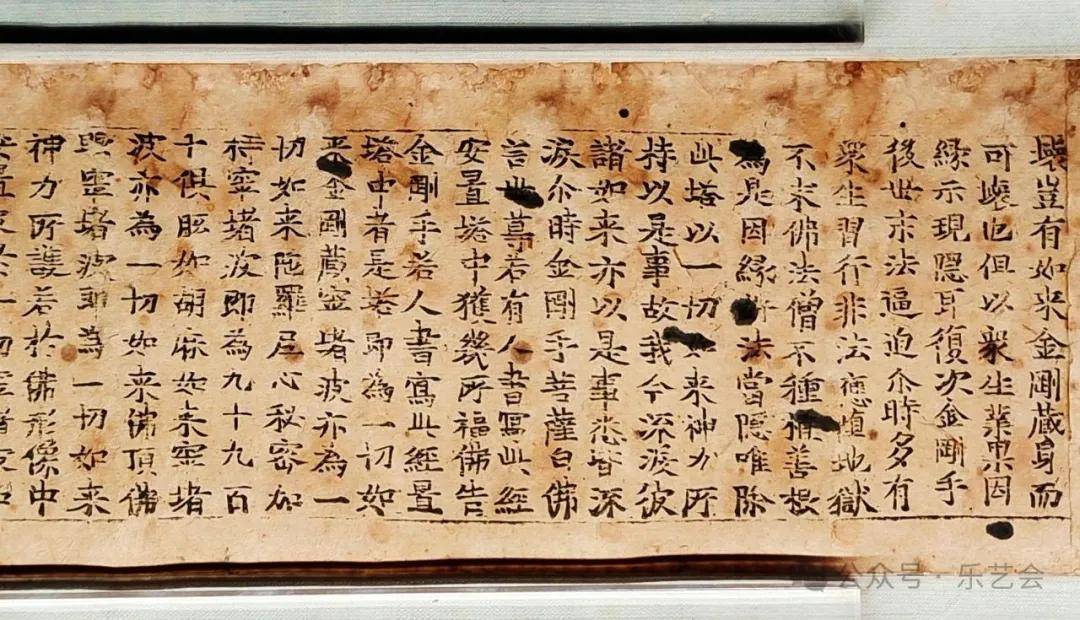 壊豈有如来金剛蔵身而
可壊也但以衆生業果因
縁示現隱耳復次金剛手
後世末法逼迫尒時多有
衆生習行非法應墮地獄
不求佛法僧不種植善根
為是因縁法當隱唯除
此塔以一切如来神力所
持以是事故我今深淚彼
諸如来亦以是事悉皆深
淚尒時金剛手菩薩白佛
言世尊若有人書寫此經
安置塔中獲幾所福佛告
金剛手若人書寫此經置
塔中者是塔即為一切如
来金剛蔵窣堵波亦為一
切如来陁羅尼心秘密加
持窣堵波即為九十九百
千俱胝如胡麻如来窣堵
波亦為一切如来佛頂佛
眼窣堵波即為一切如来
神力所護若於佛形像中
公众号·乐艺会